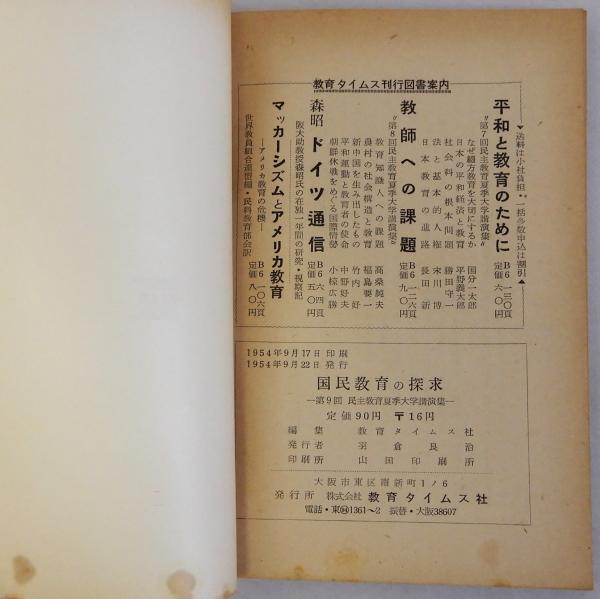 教育タイムス刊行図書案内
▼送料は小社負担・一括多数申込は割引▲
平和と教育のために
B6 一三〇頁
定価 六〇円
"第7回民主教育夏季大学講演集"
なぜ綴方教育を大切にするか 国分一太郎
日本の平和経済と教育 平野義太郎
社会科の根本問題 勝田守一
法と基本的人権 末川博
日本教育の進路 長田新
教師への課題
B6 一二六頁
定価 九〇円
"第8回民主教育夏季大学講演集"
教育知識人への課題 高桑純夫
農村の社会構造と教育 福島要一
新中国を生み出したもの 竹内好
平和運動と教育者の使命 中野好夫
朝鮮休戦をめぐる国際情勢 小椋広勝
森昭 ドイツ通信
B6 六四頁
定価 五〇円
阪大助教授森昭氏の在独一年間の研究・視察記
マッカーシズムとアメリカ教育
B6 一〇六頁
定価 八〇円
―アメリカ教育の危機―
世界教員組合連盟編・民科教育部会訳
1954年9月17日 印刷
1954年9月22日 発行
国民教育の探求
―第9回 民主教育夏季大学講演集―
定価90円 〒16円
編集 教育タイムス社
発行者 羽倉良治
印刷所 山田印刷所
大阪市東区南新町1ノ6
発行所 株式会社 教育タイムス社
電話・東㊹1361〜2 振替・大阪38607